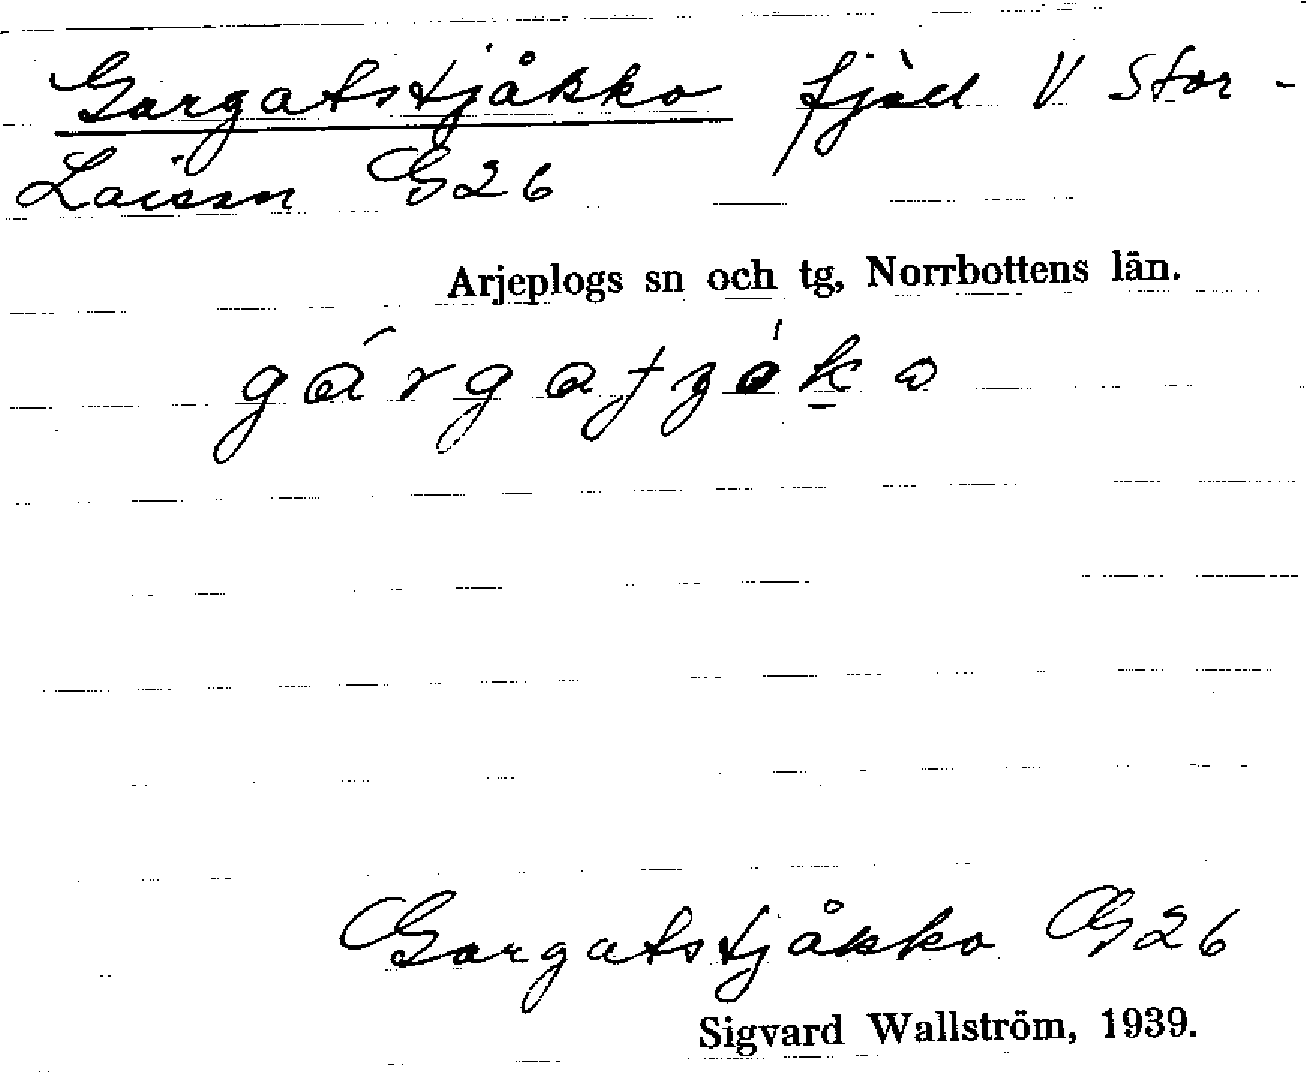 Gargatstjåkko fjäll V Stor-
Laisan G26
Arjeplogs sn och tg, Norrbottens län.
Gargatstjåkko G26
Sigvard Wallström, 1939.